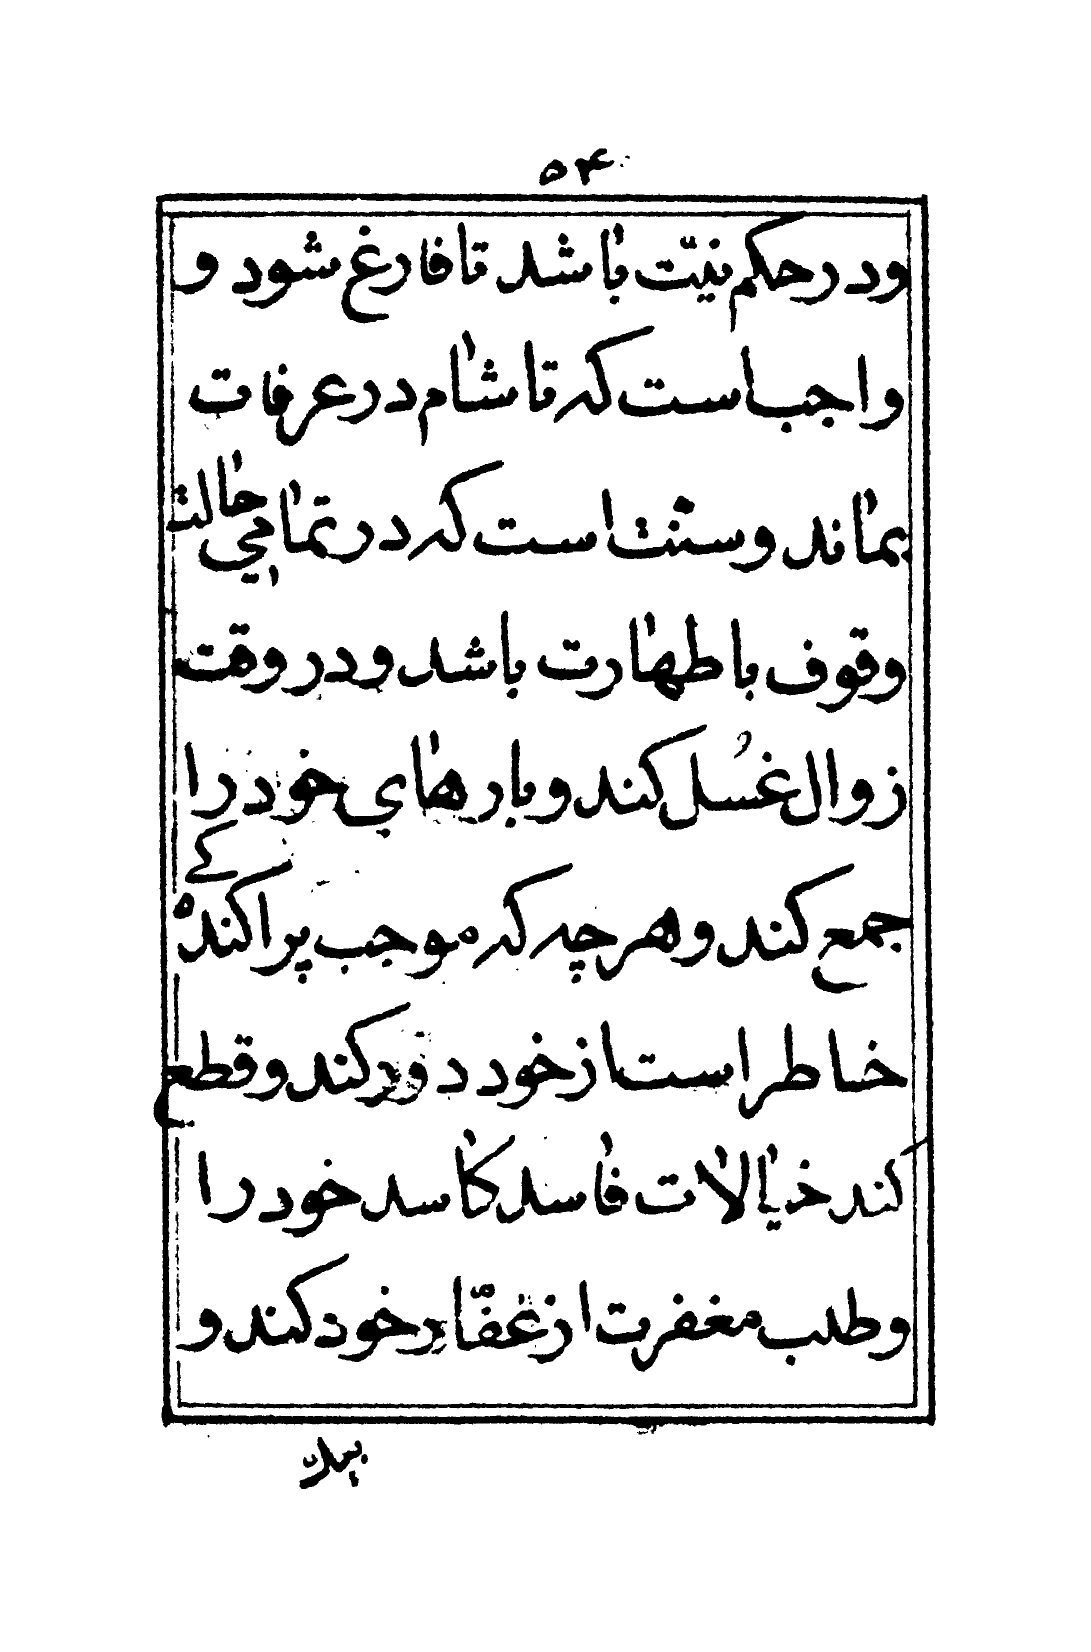 ۵۴
ودرحکم نیّت باشد تا فارغ شود و
واجب است که تا شام در عرفات
بماند و سنّت است که در تمامي حالت
وقوف با طهارت باشد و در وقت
زوال غُسل کند و بارهاي خود را
جمع کند و هرچه که موجب پراکندهٔ کے
خاطر است از خود دور کند و قطع
کند خیالات فاسد کاسد خود را
وطلب مغفرت از غفّار خود کند و